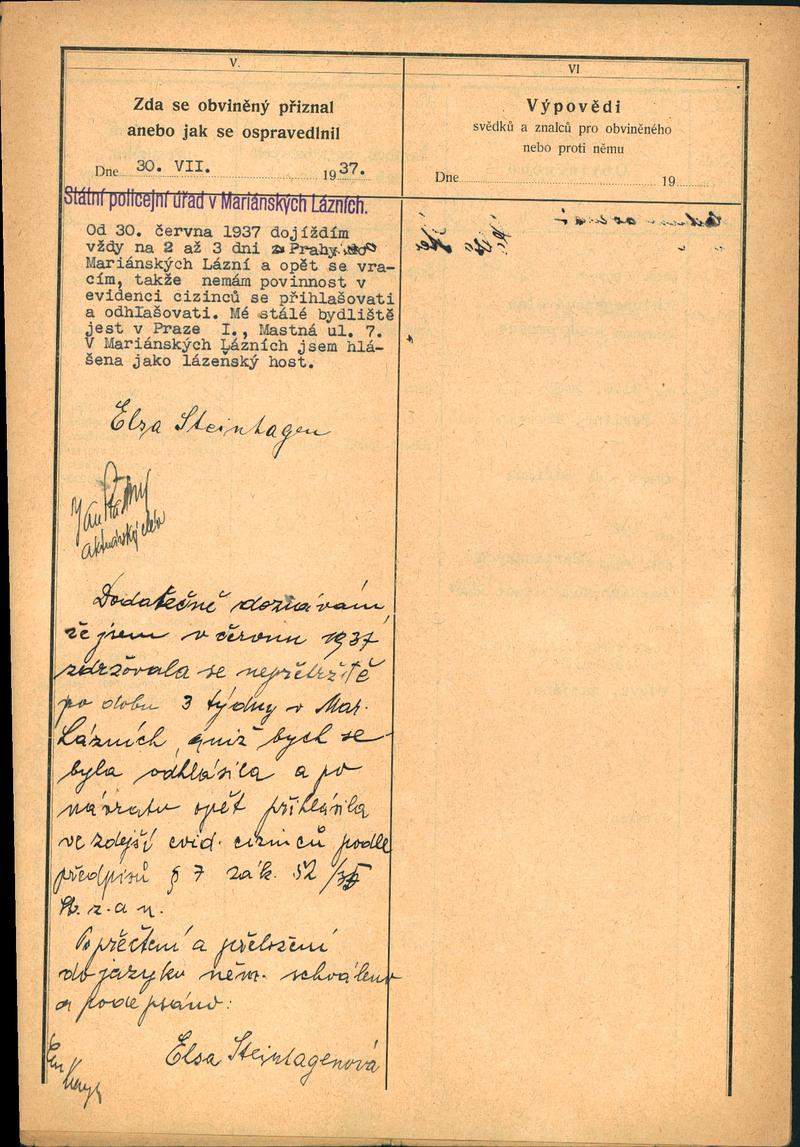 V.
Zda se obviněný přiznal
anebo jak se ospravedlnil
Dne 30. VII. 1937.
Státní policejní úřad v Mariánských Lázních.
Od 30. června 1937 dojíždím
vždy na 2 až 3 dni z Prahy do
Mariánských Lázní a opět se vra-
cím, takže nemám povinnost v
evidenci cizinců se přihlašovati
a odhlašovati. Mé stálé bydliště
jest v Praze I., Mastná ul. 7.
V Mariánských Lázních jsem hlá-
šena jako lázeňský host.
Elza Steinhagen
Jan
aktuárský
Dodatečně doznávám,
že jsem v červnu 1937
zdržovala se nepřetržitě
po dobu 3 týdny v Mar.
Lázních, aniž bych se
byla odhlásila a po
návratu opět přihlásila
ve zdejší evid. cizinců podle
předpisů § 7 zák. 52/35
Sb. z. a n.
Po přečtení a přeložení
do jazyku něm. schváleno
a podepsáno:
Elsa Steinhagenová
VI
Výpovědi
svědků a znalců pro obviněného
nebo proti němu
Dne 19